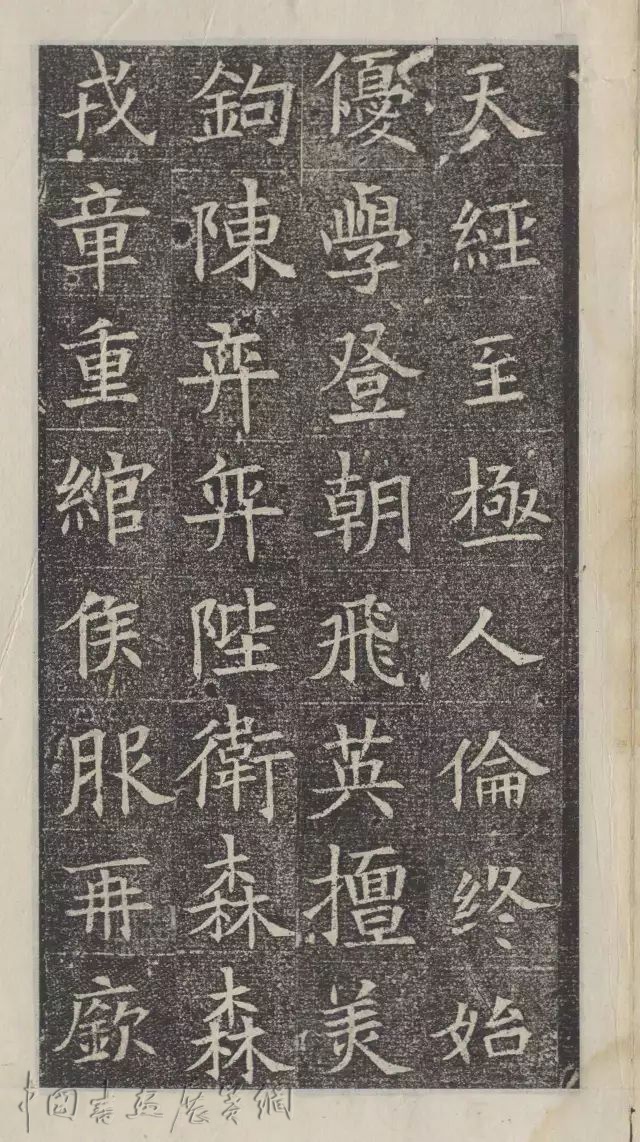 天經至極人倫終始
優學登朝飛英擅美
鉤陳弈弈陛衛森森
戎章重綰侯服再廞
中國書法展賽網